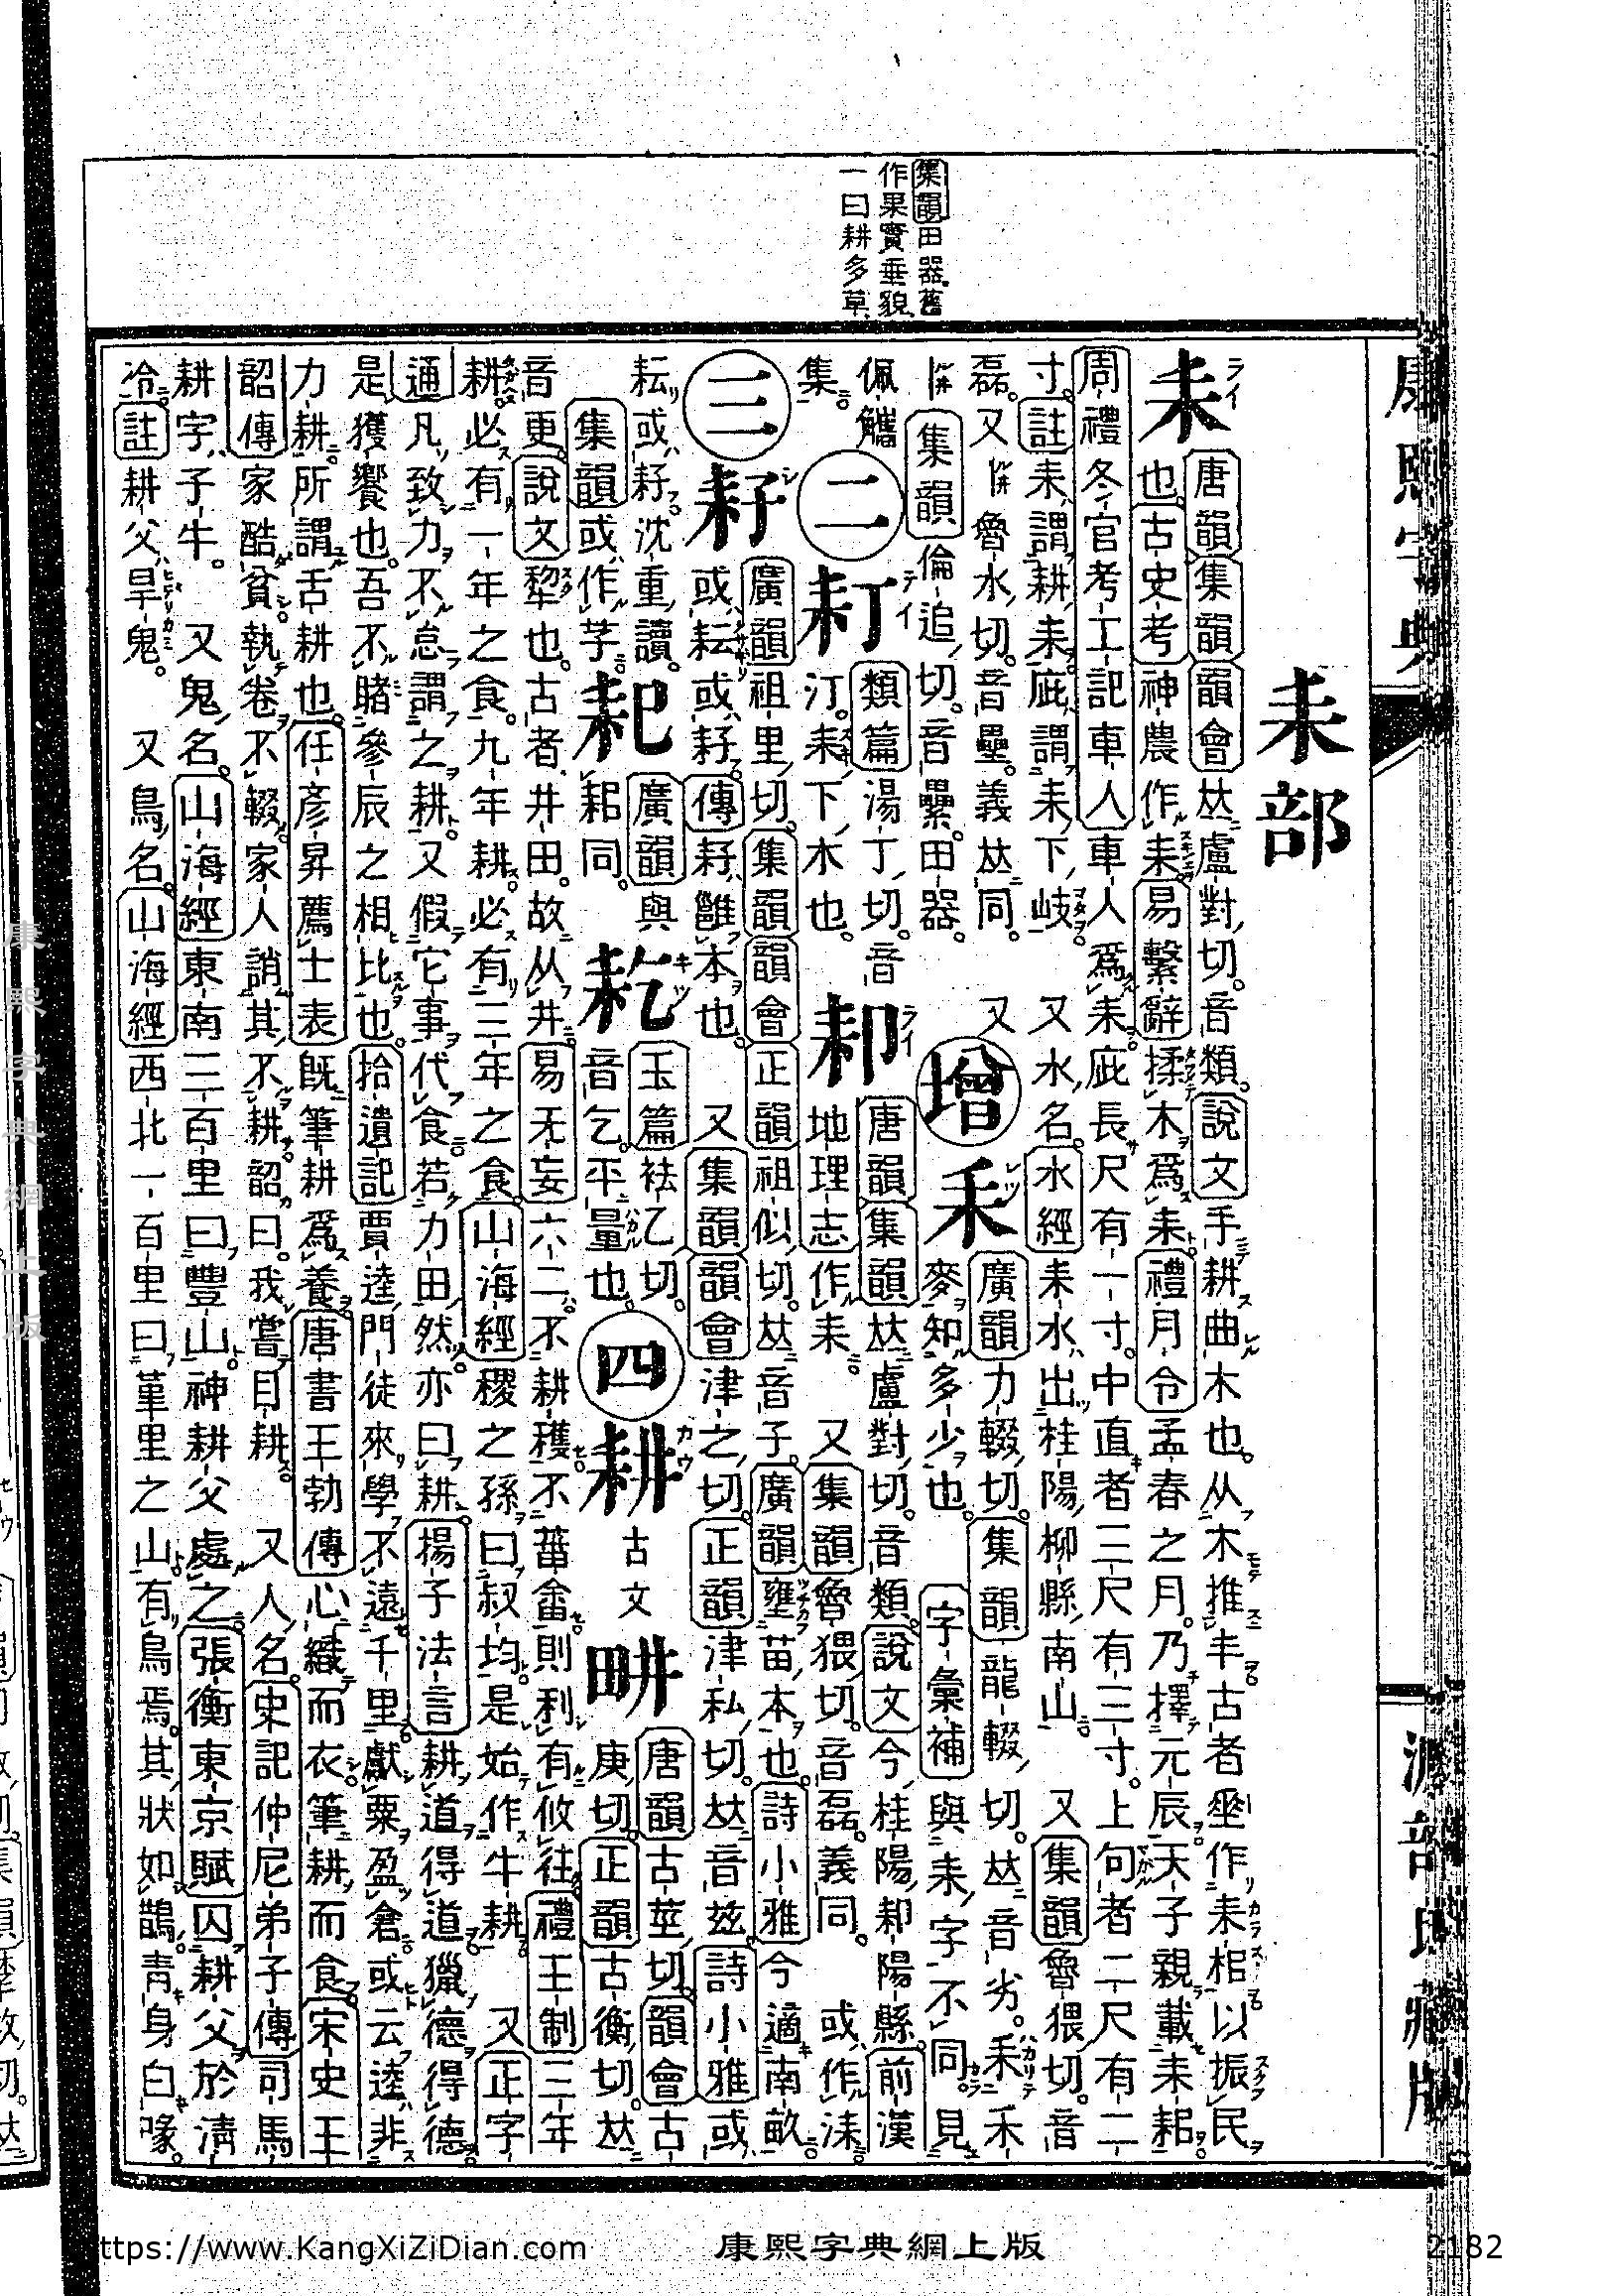 康熙字典
集韻田器舊
作果實垂貌
一曰耕多草
耒部
耒
唐韻集韻韻會𠀤盧對切音類說文手耕曲木也从木推丰古者埀作耒枱以振民
也古史考神農作耒易繫辭揉木爲耒禮月令孟春之月乃擇元辰天子親載耒耜
周禮冬官考工記車人車人爲耒庇長尺有一寸中直者三尺有三寸上句者二尺有二
寸註耒謂耕耒庇謂耒下岐 又水名水經耒水出桂陽柳縣南山 又集韻魯猥切音
磊又魯水切音壘義𠀤同 又
集韻倫追切音纍田器
增
廣韻力輟切集韻龍輟切𠀤音劣
麥知多少也 字彙補與耒字不同見
佩觿
集
二
耓
類篇湯丁切音
汀耒下木也
唐韻集韻𠀤盧對切音類說文今桂陽陽縣前漢
地理志作耒 又集韻魯猥切音磊義同 或作洡
三
耔
廣韻祖里切集韻韻會正韻祖似切𠀤音子廣韻壅苗本也詩小雅今適南畝
或耘或耔傳耔雝本也 又集韻韻會津之切正韻津私切𠀤音兹詩小雅或
耘或耔沈重讀
集韻或作芓
耛
廣韻與
耜同
䎢
玉篇袪乙切
音乞平量也
四
耕
古文
畊
唐韻古莖切韻會古
庚切正韻古衡切𠀤
音更說文犂也古者井田故从井易无妄六二不耕穫不菑畬則利有攸往禮王制三年
耕必有一年之食九年耕必有三年之食山海經稷之孫曰叔均是始作牛耕 又正字
通凡致力不怠謂之耕又假它事代食若力田然亦曰耕揚子法言耕道得道獵德得德
是獲饗也吾不睹參辰之相比也拾遺記賈逵門徒來學不遠千里獻粟盈倉或云逵非
力耕所謂舌耕也任彥昇薦士表旣筆耕爲養唐書王勃傳心織而衣筆耕而食宋史王
韶傳家酷貧執卷不輟家人誚其不耕韶曰我嘗目耕 又人名史記仲尼弟子傳司馬
耕字子牛 又鬼名山海經東南三百里曰豐山神耕父處之張衡東京賦囚耕父於淸
冷註耕父旱鬼 又鳥名山海經西北一百里曰堇里之山有鳥焉其狀如鵲靑身白喙
康熙字典網上版
ttps://www.KangXiZiDian.com
康熙字典網上版
2182